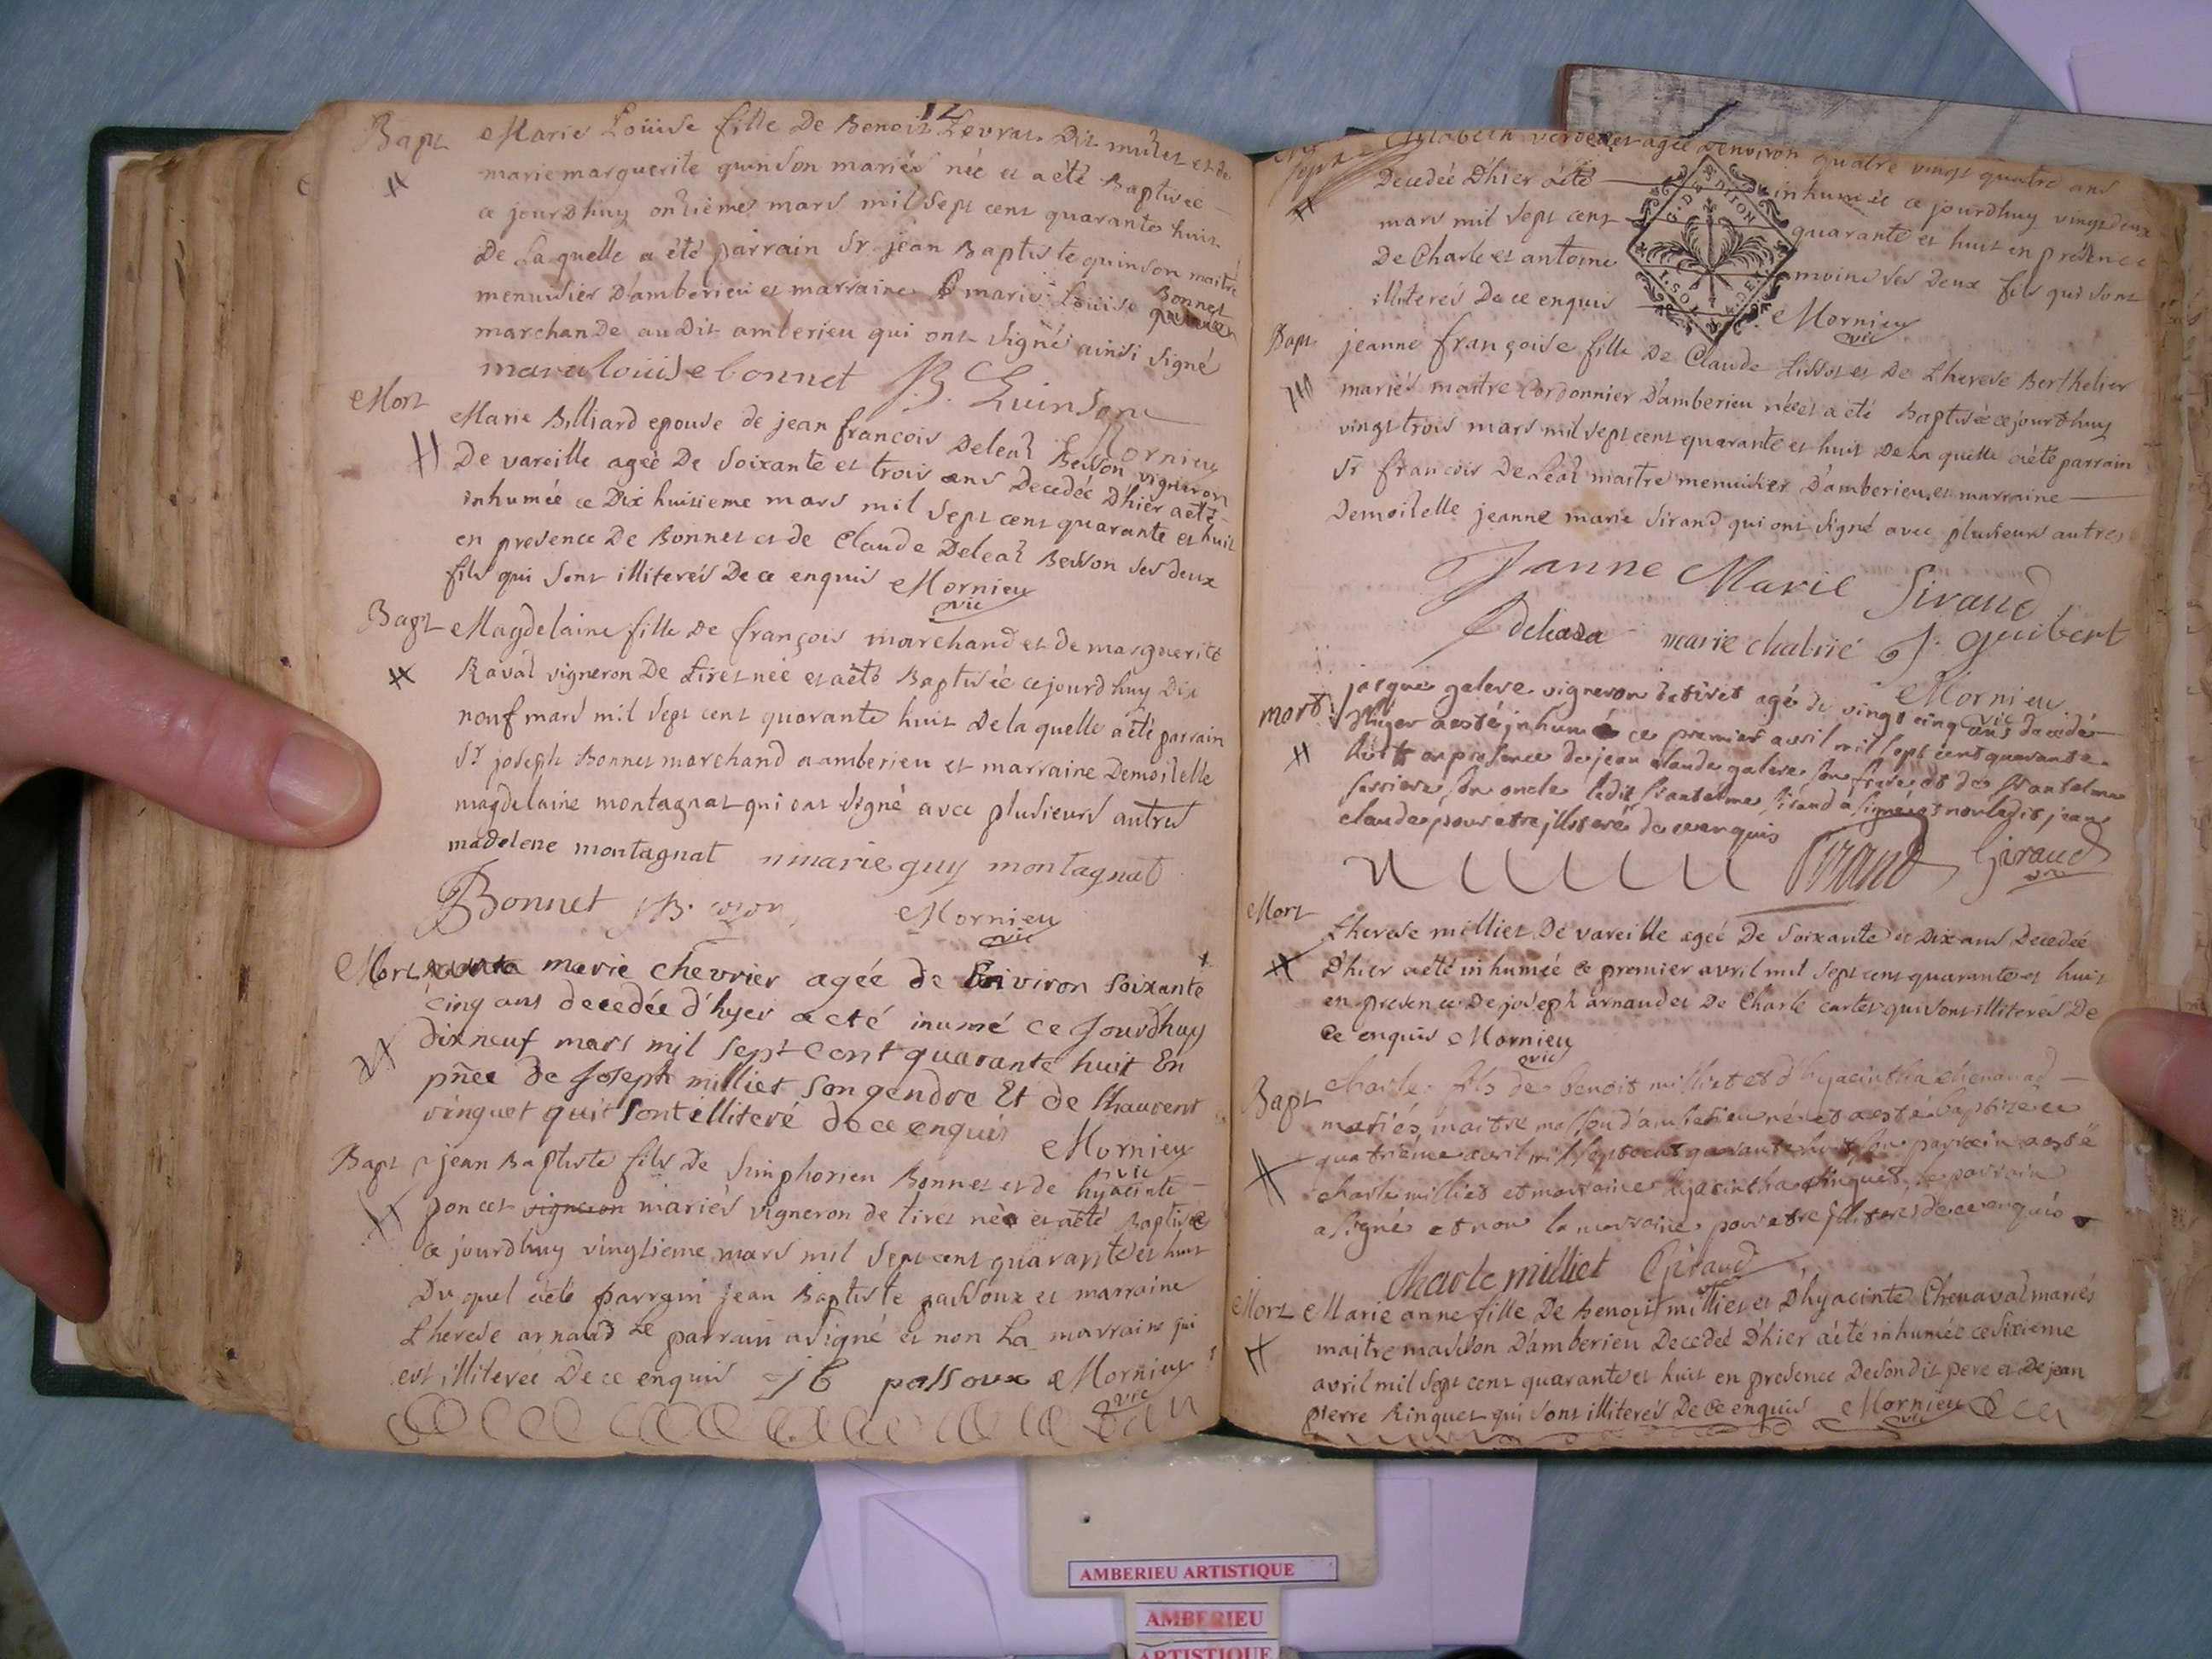 12
Bapt Marie Loüise fille De Benoit Levrat Dit mulet et de
marie marguerite quinson mariés née et a été Baptisée
ce jourdhuy onzieme mars mil sept cent quarante huit
De Laquelle a été parrain Sr jean Baptiste quinson maitre
menuisier D'amberieu et marraine marie Loüise Bonnet
marchande audit amberieu qui ont signé ainsi signé
marie louise bonnet J. B. Quinson
Mornieu
Mort Marie Billiard epouse de jean francois Deleaz Besson vigneron
De vareille ageé De soixante et trois ans Decedée D'hier a eté
inhumée ce Dix huitieme mars mil sept cent quarante et huit
en presence De Bonnet et de Claude Deleaz Besson ses deux
fils qui sont illiterés De ce enquis Mornieu
vic
Bapt Magdelaine fille De françois marchand et de marguerite
Raval vigneron De tiret née et a été Baptisée ce jourd'huy Dix
neuf mars mil sept cent quarante huit De la quelle a été parrain
Sr joseph Bonnet marchand a amberieu et marraine Demoiselle
magdelaine montagnat qui ont signé avec plusieurs autres
madelene montagnat marie guy montagnat
Bonnet Mornieu
vic
Mort marie chevrier agée de Environ soixante
cinq ans decedée d'hyer a eté inumé ce Jourdhuy
dixneuf mars mil sept cent quarante huit En
pñce de Joseph milliet son gendre Et de Lhaurent
vinguet qui sont illiteré de ce enquis Mornieu
vic
Bapt jean Baptiste fils De Simphorien Bonnet et de hyacinte
poncet vigneron mariés vigneron de tiret née et a été Baptisée
ce jourdhuy vingtieme mars mil sept cent quarante et huit
Du quel a été parrain jean Baptiste passoux et marraine
therese arnaud Le parrain a signé et non La marraine qui
est illiterée De ce enquis J B passoux Mornieu
vic
agée D'environ quatre vingt quatre ans
Decedeé D'hier a été inhumée ce jourdhuy vingt deux
mars mil sept cent quarante et huit en présence
De Charle et antoine amoins ses deux fils qui sont
illiterés De ce enquis Mornieu
vic
G. DE DIJON
Bapt jeanne françoise fille De Claude Lissot et De therese Berthelier
mariés maitre Cordonnier D'amberieu née et a été Baptisée ce jourdhuy
vingt trois mars mil sept cent quarante et huit De La quelle a été parrain
Sr francois DeLéaz maitre menuisier D'amberieu et marraine
Demoiselle jeanne marie Sirand qui ont signé avec plusieurs autres
Janne Marie Sirand
F deleaza marie chabrié J. guibert
Mornieu
vic
mort jacque galeve vigneron de tiret agé de vingt cinq ans decedé
d'hyer a esté inhumé ce premier avril mil sept cent quarante
huit en presence de jean claude galeve son frere et de
son oncle ledit Sirand a signé et non ledit jean
claude pour etre illiteré de ce enquis
Sirand Giraud
vic
Mort therese milliet De vareille ageé De soixante et Dix ans Decedeé
D'hier a été inhumée ce premier avril mil sept cent quarante et huit
en presence De joseph arnaud et De Charle cartet qui sont illiterés De
ce enquis Mornieu
vic
Bapt Charle fils de benoit milliet et d'hyacintha chenavad
mariés maitre masson d'amberieu né et a esté baptizé ce
quatrième avril mil sept cent quarante huit son parrain a esté
charle milliet et marraine hyacintha Ringuet, le parrain
a signé et non la marraine pour etre illiterée de ce enquis
Charle milliet Giraud
vic
Mort Marie anne fille De Benoit milliet et D'hyacinte Chenavad mariés
maitre masson D'amberieu Decedeé D'hier a été inhumée ce sixieme
avril mil sept cent quarante et huit en presence De son dit pere et De jean
pierre Ringuet qui sont illiterés De ce enquis Mornieu
vic
AMBERIEU ARTISTIQUE
AMBERIEU
ARTISTIQUE